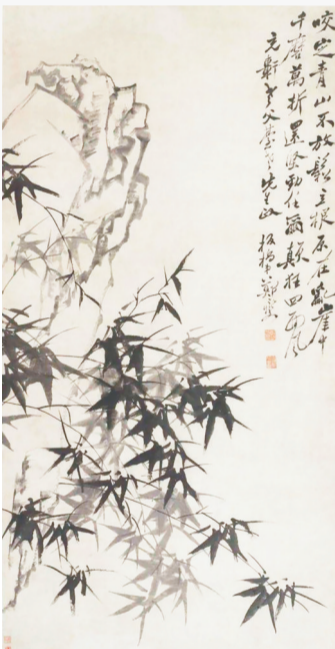 咬定青山不放鬆立根原在亂崖中
千磨萬折還堅勁任爾顛狂四面風
軒老父臺先生政 板橋鄭燮